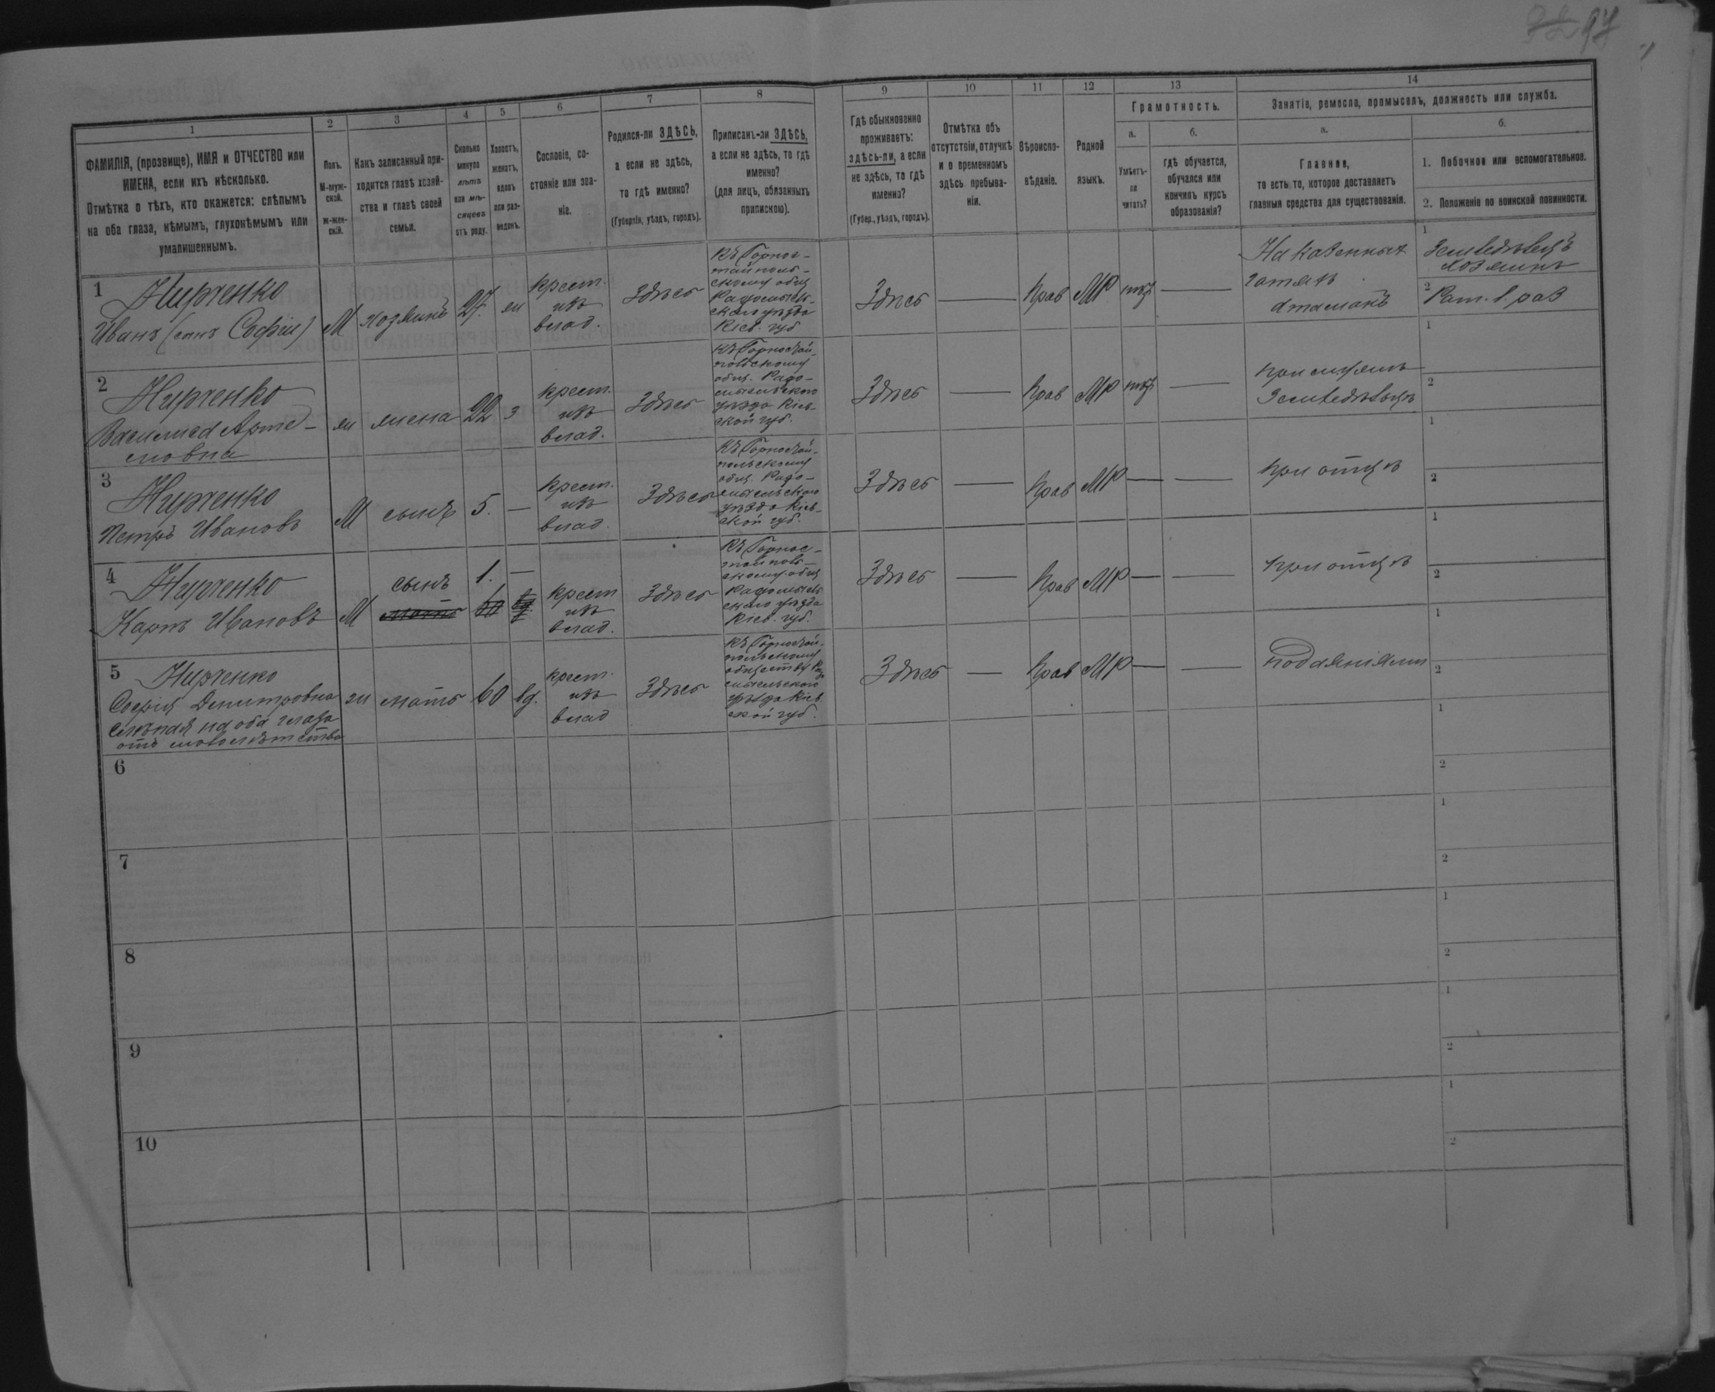 97
1
2
3
4
5
6
7
8
9
10
11
12
13
14
ФАМИЛІЯ, (прозвище), ИМЯ и ОТЧЕСТВО или
ИМЕНА, если ихъ нѣсколько.
Отмѣтка о тѣхъ, кто окажется: слѣпымъ
на оба глаза, нѣмымъ, глухонѣмымъ или
умалишеннымъ.
Полъ.
М-муж-
ской.
Ж-жен-
скій.
Какъ записанный при-
ходится главѣ хозяй-
ства и главѣ своей
семьи.
Сколько
минуло
лѣтъ
или мѣ-
сяцевъ
отъ роду.
Холостъ,
женатъ,
вдовъ
или раз-
веденъ.
Сословіе, со-
стояніе или зва-
ніе.
Родился-ли ЗДѢСЬ,
а если не здѣсь,
то гдѣ именно?
(Губернія, уѣздъ, городъ).
Приписанъ-ли ЗДѢСЬ,
а если не здѣсь, то гдѣ
именно?
(для лицъ, обязанныхъ
припискою).
Гдѣ обыкновенно
проживаетъ:
здѣсь-ли, а если
не здѣсь, то гдѣ
именно?
(Губер., уѣздъ, городъ).
Отмѣтка объ
отсутствіи, отлучкѣ
и о временномъ
здѣсь пребыва-
ніи.
Вѣроиспо-
вѣданіе.
Родной
языкъ.
Грамотность.
а.
Умѣетъ-
ли
читать?
б.
гдѣ обучается,
обучался или
кончилъ курсъ
образованія?
Занятіе, ремесло, промыселъ, должность или служба.
а.
Главное,
то есть то, которое доставляетъ
главныя средства для существованія.
б.
1. Побочное или вспомогательное.
2. Положеніе по воинской повинности.
1
Иванъ (сынъ Софіи)
М
хозяинъ
27
жн
крест.
изъ
влад.
Здѣсь
Къ Горно-
скому общ
Радомысль-
скаго уѣзда
Кіев. губ
Здѣсь
—
Прав
МР
—
На казенныхъ
1
Земледѣлецъ
хозяинъ
2
Рат. 1 раз
2
Василиса Арте-
мовна
ж
жена
22
з
крест.
изъ
влад.
Здѣсь
общ. Радо-
мысльскаго
уѣзда Кіев-
ской губ.
Здѣсь
—
Прав
МР
—
при мужѣ
Земледѣлецъ
1
2
3
Петръ Ивановъ
М
сынъ
5.
—
крест.
изъ
влад.
Здѣсь
общ. Радо-
мысльскаго
уѣзда Кіев-
ской губ.
Здѣсь
—
Прав
МР
—
—
при отцѣ
1
2
4
Карпъ Ивановъ
М
сынъ
мать
1.
60
—
вд
крест
изъ
влад.
Здѣсь
скому общ
Радомысль
скаго уѣзда
Кіев. губ.
Здѣсь
—
Прав
МР
—
—
при отцѣ
1
2
5
Софія Дмитровна
слѣпая на оба глаза
отъ малолѣтства
ж
мать
60
вд.
крест.
изъ
влад
Здѣсь
обществу Ра
мысльскаго
уѣзда Кіев
ской губ.
Здѣсь
—
Прав
МР
—
—
подаяніями
1
2
6
1
2
7
1
2
8
1
2
9
1
2
10
1
2